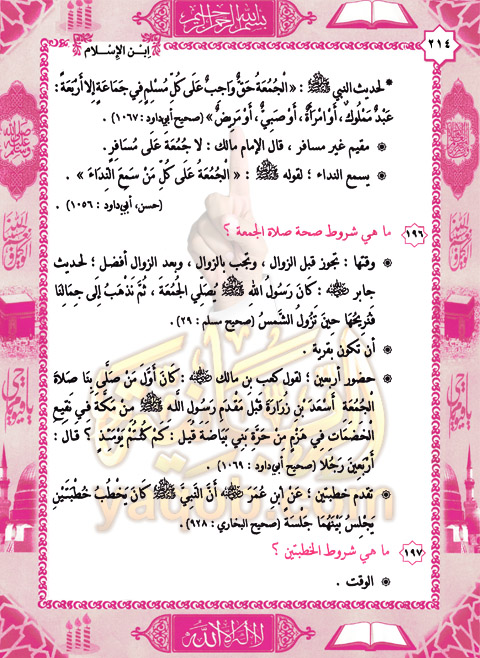 بسم الله الرحمن الرحيم
٢١٤
ابن الإسلام
لحديث النبي ﷺ : « الْجُمُعَةُ حَقٌّ وَاجِبٌ عَلَى كُلِّ مُسْلِمٍ فِي جَمَاعَةٍ إِلا أَرْبَعَةً :
عَبْدٌ مَمْلُوكٌ ، أَوْ امْرَأَةٌ ، أَوْ صَبِيٌّ ، أَوْ مَرِيضٌ » (صحيح أبي داود : ١٠٦٧) .
مقيم غير مسافر ، قال الإمام مالك : لا جُمُعَةَ عَلَى مُسَافِرٍ.
يسمع النداء ؛ لقوله ﷺ : « الْجُمُعَةُ عَلَى كُلِّ مَنْ سَمِعَ النِّدَاءَ » .
(حسن، أبي داود : ١٠٥٦) .
١٩٦ ما هي شروط صحة صلاة الجمعة ؟
وقتها : تجوز قبل الزوال ، وتجب بالزوال ، وبعد الزوال أفضل ؛ لحديث
جابر ﷺ : كَانَ رَسُولُ الله ﷺ يُصَلِّي الْجُمُعَةَ ، ثُمَّ نَذْهَبُ إِلَى جِمَالِنَا
فَنُرِيحُهَا حِينَ تَزُولُ الشَّمْسُ (صحيح مسلم : ٢٩).
أن تكون بقرية .
حضور أربعين ؛ لقول كعب بن مالك : كَانَ أَوَّلَ مَنْ صَلَّى بِنَا صَلَاةَ
الْجُمُعَةِ أَسْعَدُ بْنُ زُرَارَةَ قَبْلَ مَقْدَمِ رَسُولِ اللَّهِ ﷺ مِنْ مَكَّةَ فِي نَقِيعِ
الْخَضَمَاتِ فِي هَزْمٍ مِنْ حَرَّةِ بَنِي بَيَاضَةَ قِيلَ : كَمْ كُنْتُمْ يَوْمَئِذٍ ؟ قَالَ :
أَرْبَعِينَ رَجُلًا (صحيح أبي داود : ١٠٦٩) .
تقدم خطبتين ؛ عَنْ ابنِ عُمَرَ أَنَّ النَّبِيَّ ﷺ كَانَ يَخْطُبُ خُطْبَتَيْنِ
يَجْلِسُ بَيْنَهُمَا جَلْسَةً (صحيح البخاري : ٩٢٨) .
١٩٧ ما هي شروط الخطبتين ؟
الوقت .
لا إله إلا الله